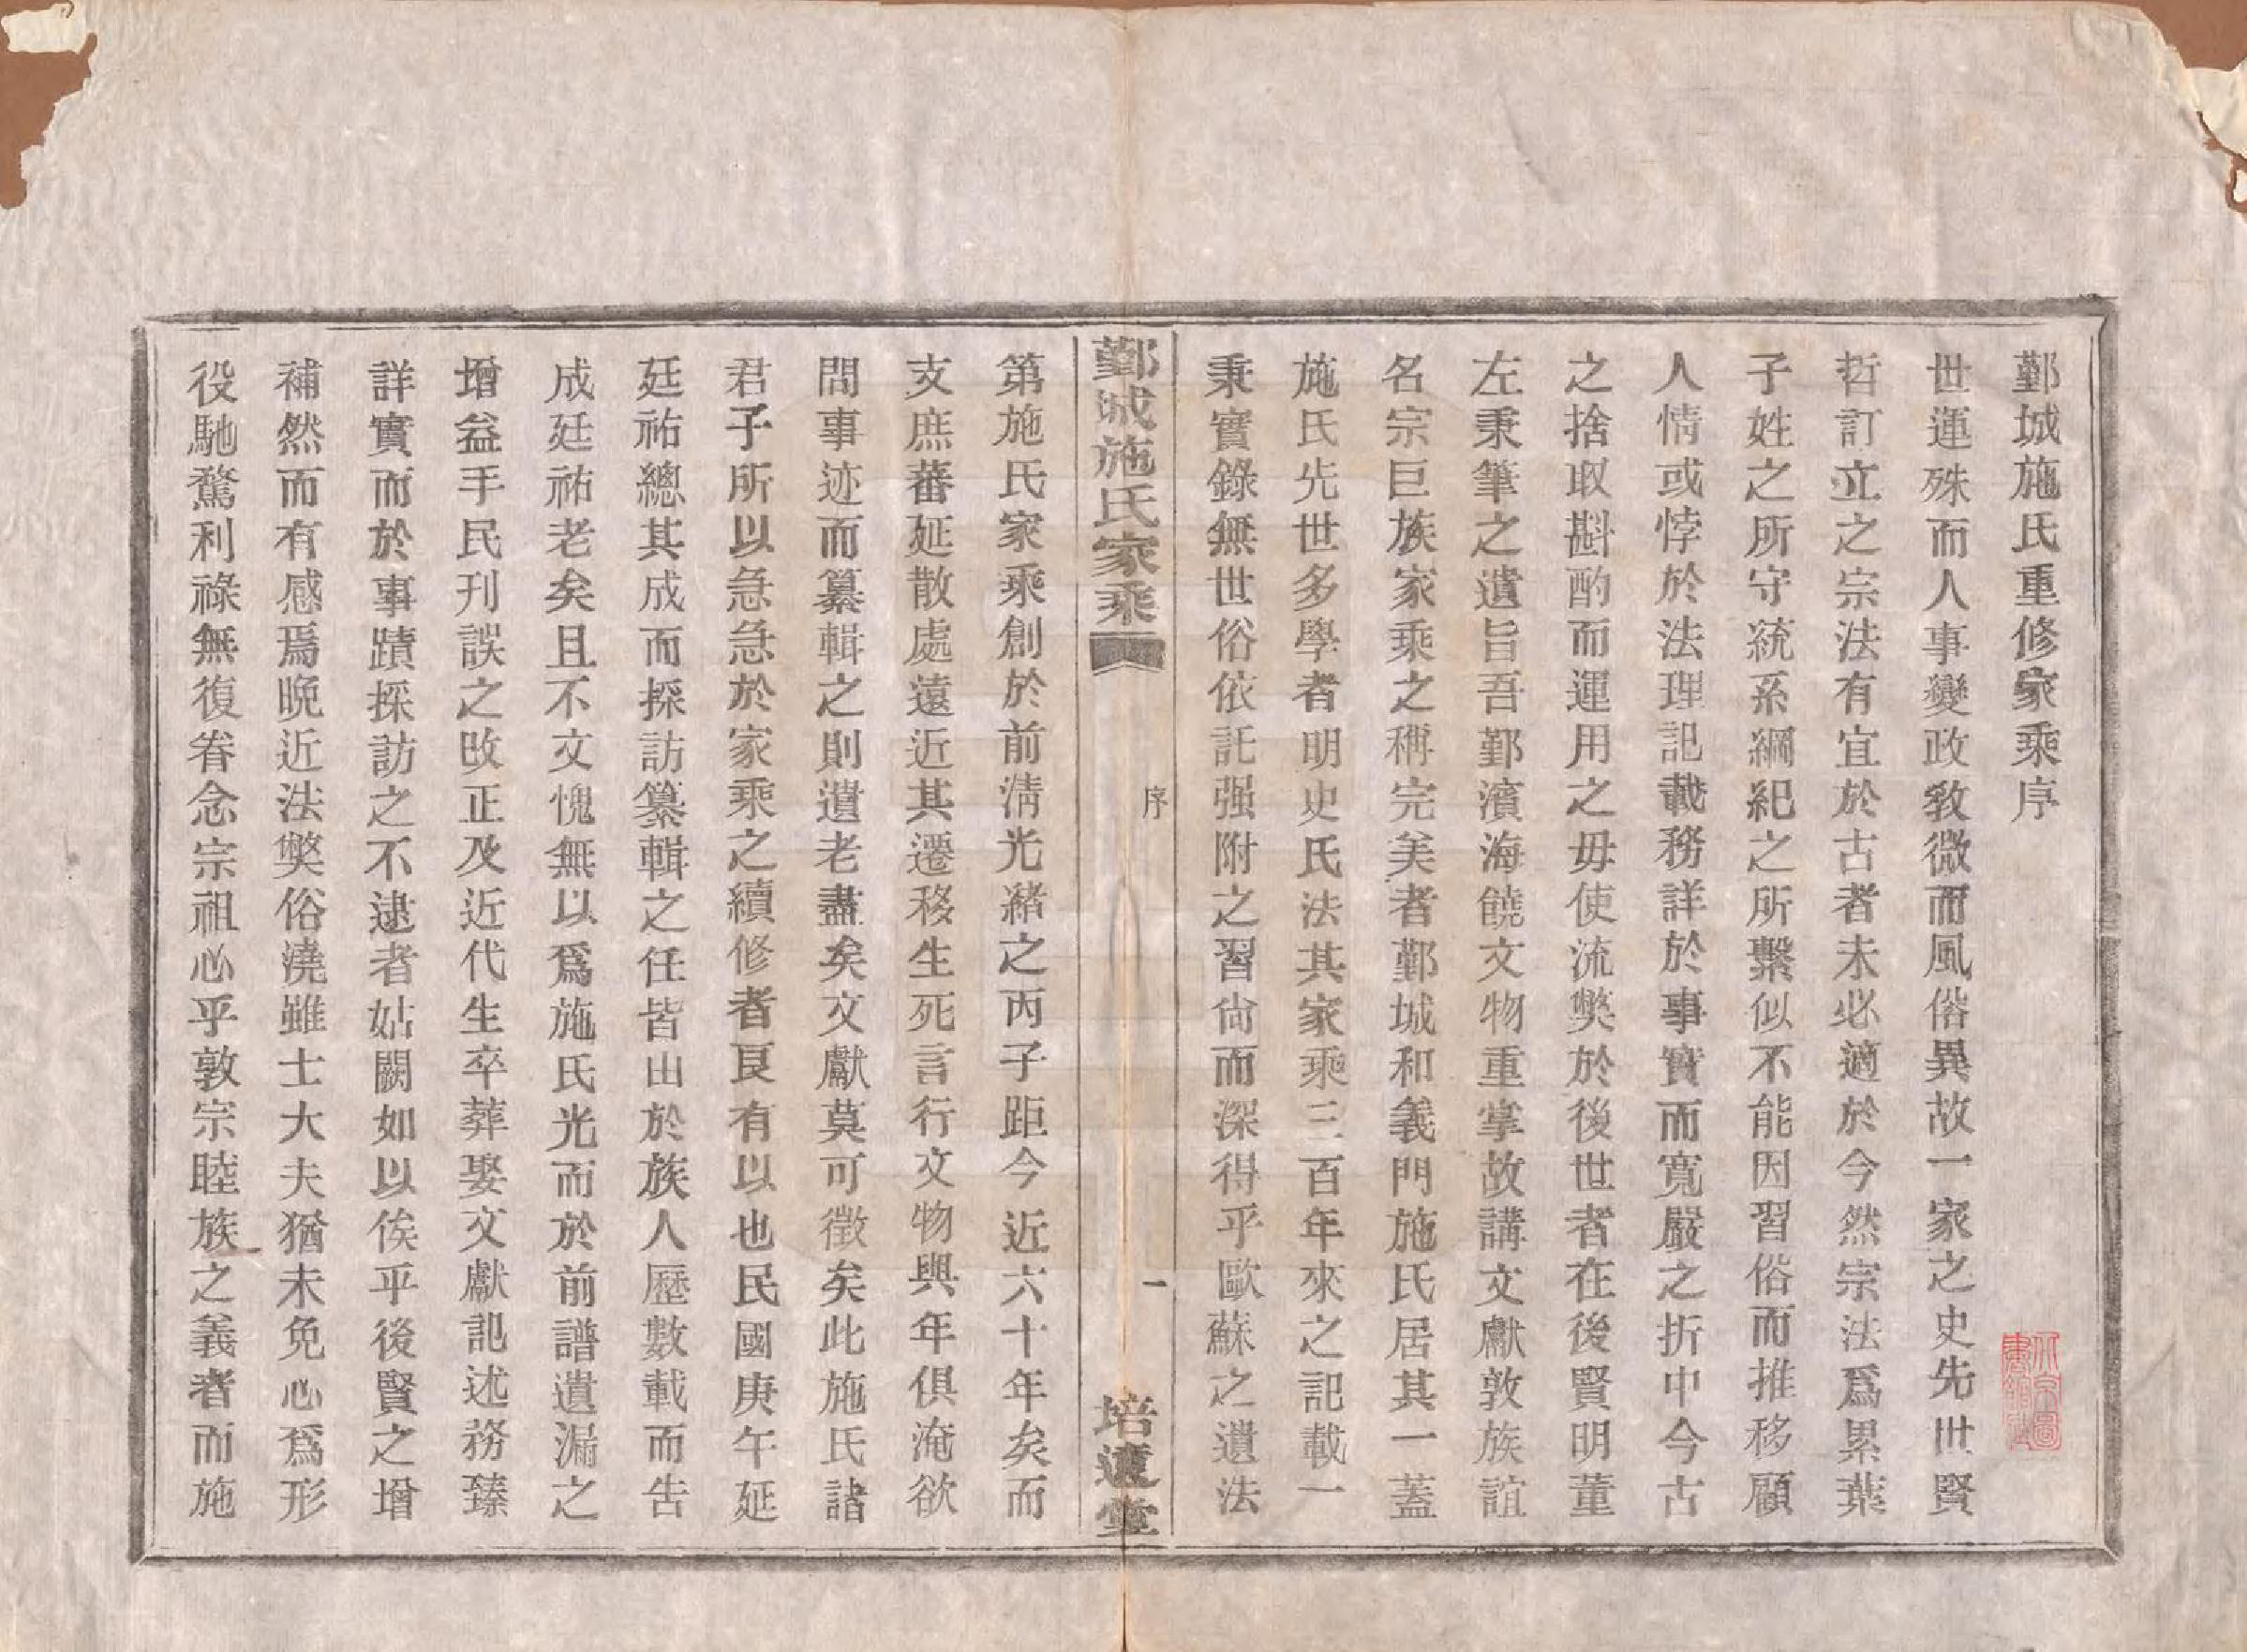 鄞城施氏重修家乘序
世運殊而人事變政敎微而風俗異故一家之史先世賢
哲訂立之宗法有宜於古者未必適於今然宗法爲累葉
子姓之所守統系綱紀之所繫似不能因習俗而推移顧
人情或悖於法理記載務詳於事實而寬嚴之折中今古
之捨取斟酌而運用之毋使流獘於後世者在後賢明董
左秉筆之遺旨吾鄞濱海饒文物重掌故講文獻敦族誼
名宗巨族家乘之稱完美者鄞城和義門施氏居其一蓋
施氏先世多學者明史氏法其家乘三百年來之記載一
秉實錄無世俗依託强附之習尙而深得乎歐蘇之遺法
鄞城施氏家乘
序
一
培遠堂
第施氏家乘創於前淸光緖之丙子距今近六十年矣而
支庶蕃延散處遠近其遷移生死言行文物與年俱淹欲
問事迹而纂輯之則遺老盡矣文獻莫可徵矣此施氏諸
君子所以急急於家乘之續修者良有以也民國庚午延
廷祐總其成而採訪纂輯之任皆由於族人歷數載而告
成廷祐老矣且不文愧無以爲施氏光而於前譜遺漏之
增益手民刊誤之改正及近代生卒葬娶文獻記述務臻
詳實而於事蹟採訪之不逮者姑闕如以俟乎後賢之增
補然而有感焉晩近法獘俗澆雖士大夫猶未免心爲形
役馳騖利祿無復眷念宗祖心乎敦宗睦族之義者而施